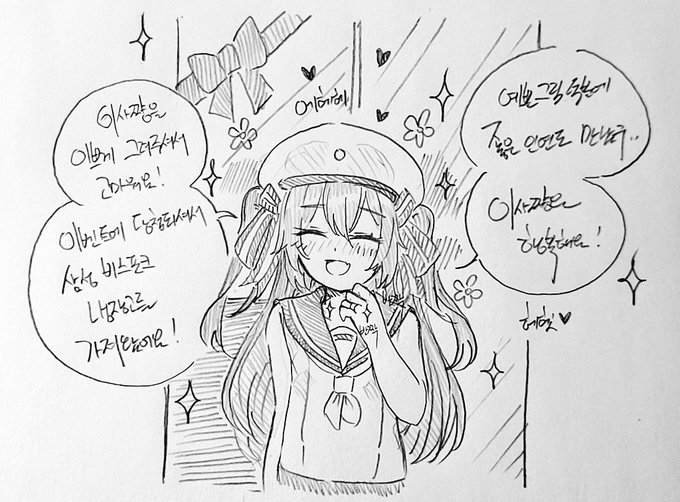 이사짱을
이쁘게 그려주셔서
고마워요!
이벤트에 당첨되셔서
삼성 비스포크
냉장고를
가져왔어요!
에헤헤
예쁜그림 덕분에
좋은 인연도 만났구..
이사짱은
행복해요!
헤헷♥